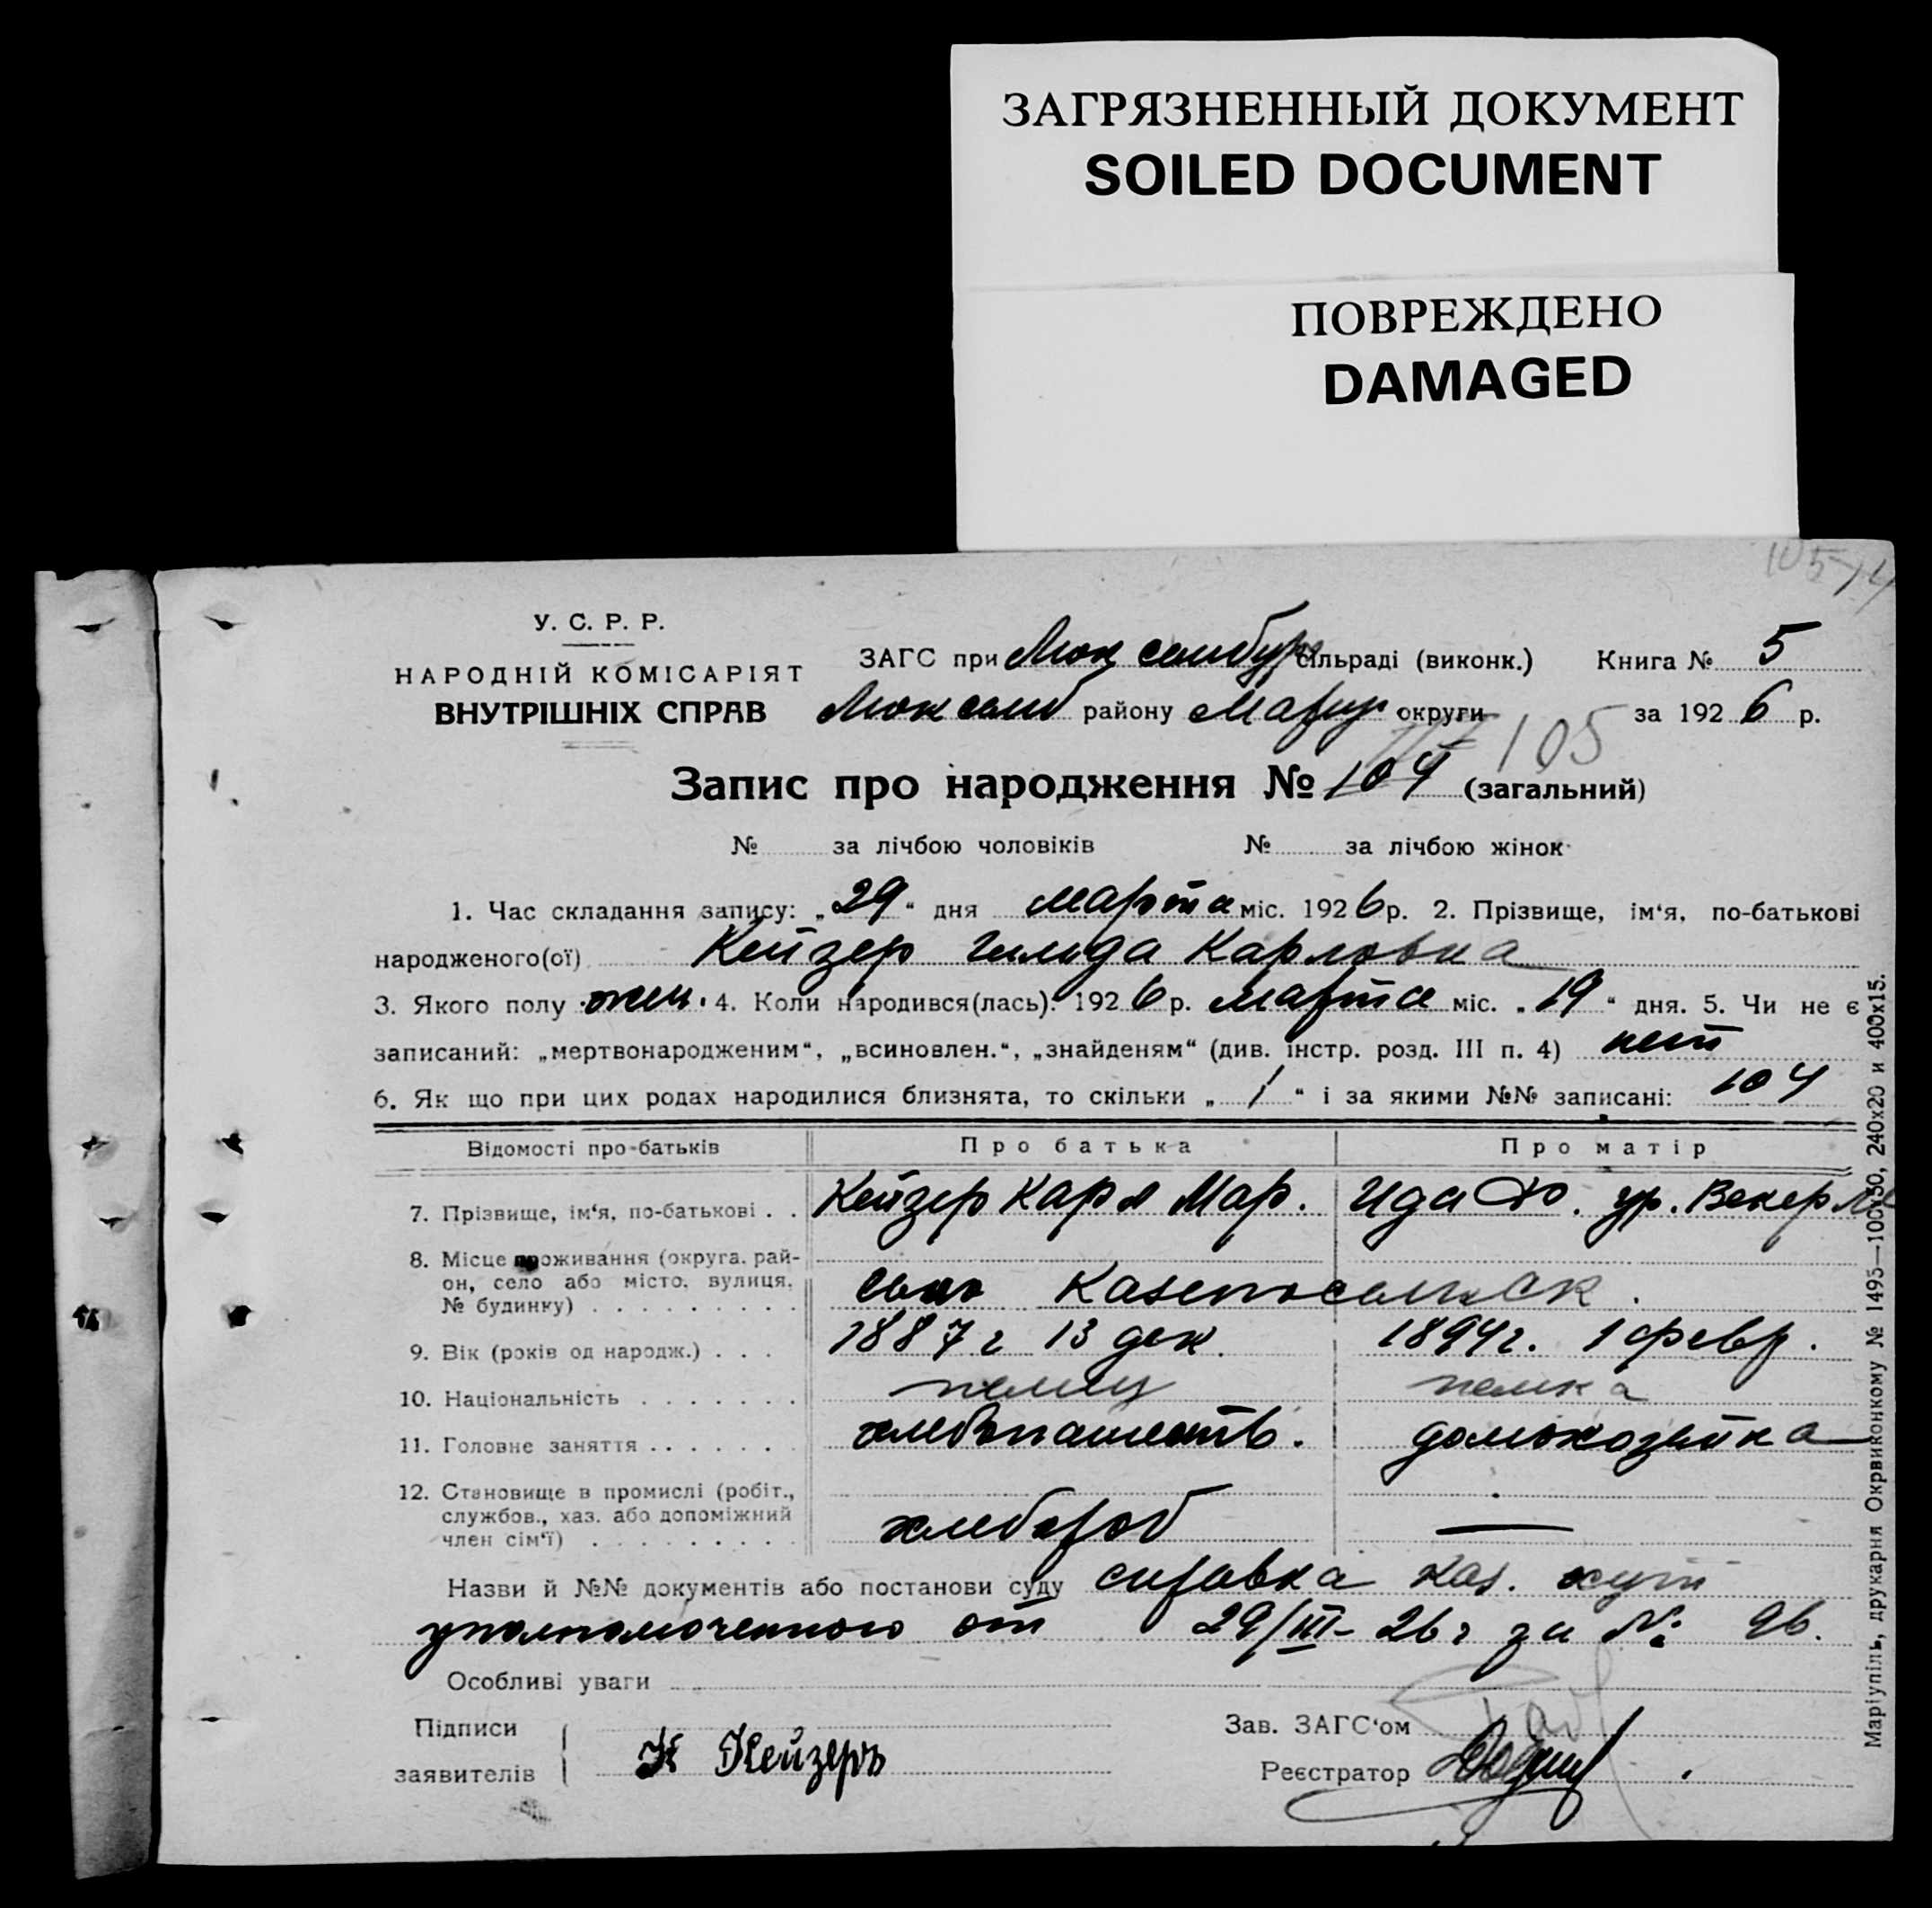 ЗАГРЯЗНЕННЫЙ ДОКУМЕНТ
SOILED DOCUMENT
ПОВРЕЖДЕНО
DAMAGED
105
У. С. Р. Р.
НАРОДНІЙ КОМІСАРІЯТ
ВНУТРІШНІХ СПРАВ
ЗАГС при Люксембург сільраді (виконк.) Книга № 5
Люксемб району Мариуп округи за 1926 р.
105
Запис про народження № 104 (загальний)
№ за лічбою чоловіків № за лічбою жінок
1. Час складання запису: „29" дня марта міс. 1926 р. 2. Прізвище, ім'я, по-батькові
народженого(ої) Кейзер Гильда Карловна
3. Якого полу жен. 4. Коли народився(лась): 1926 р. марта міс. „19" дня. 5. Чи не є
записаний: „мертвонародженим", „всиновлен.", „знайденям" (див. інстр. розд. III п. 4) нет
6. Як що при цих родах народилися близнята, то скільки „1" і за якими №№ записані: 104
Відомості про батьків Про батька Про матір
7. Прізвище, ім'я, по-батькові . . Кейзер Карл Мар. Ида Ф. ур. Векерле
8. Місце проживання (округа, рай-
он, село або місто, вулиця,
№ будинку) . . . . . . . . . село
9. Вік (років од народж.) . . . 1887 г 13 дек. 1894 г. 1 февр.
10. Національність . . . . . . . немец немка
11. Головне заняття . . . . . . хлебопашеств. домохозяйка
12. Становище в промислі (робіт.,
службов., хаз. або допоміжний
член сім'ї) . . . . . . . . . хлебороб —
Назви й №№ документів або постанови суду справка Каз. хут
уполномоченного от 29/III-26 г за № 96.
Особливі уваги
Підписи
заявителів К Кейзеръ
Зав. ЗАГС'ом
Реєстратор
Маріупіль, друкарня Окрвиконкому № 1495—100х30, 240х20 и 400х15.